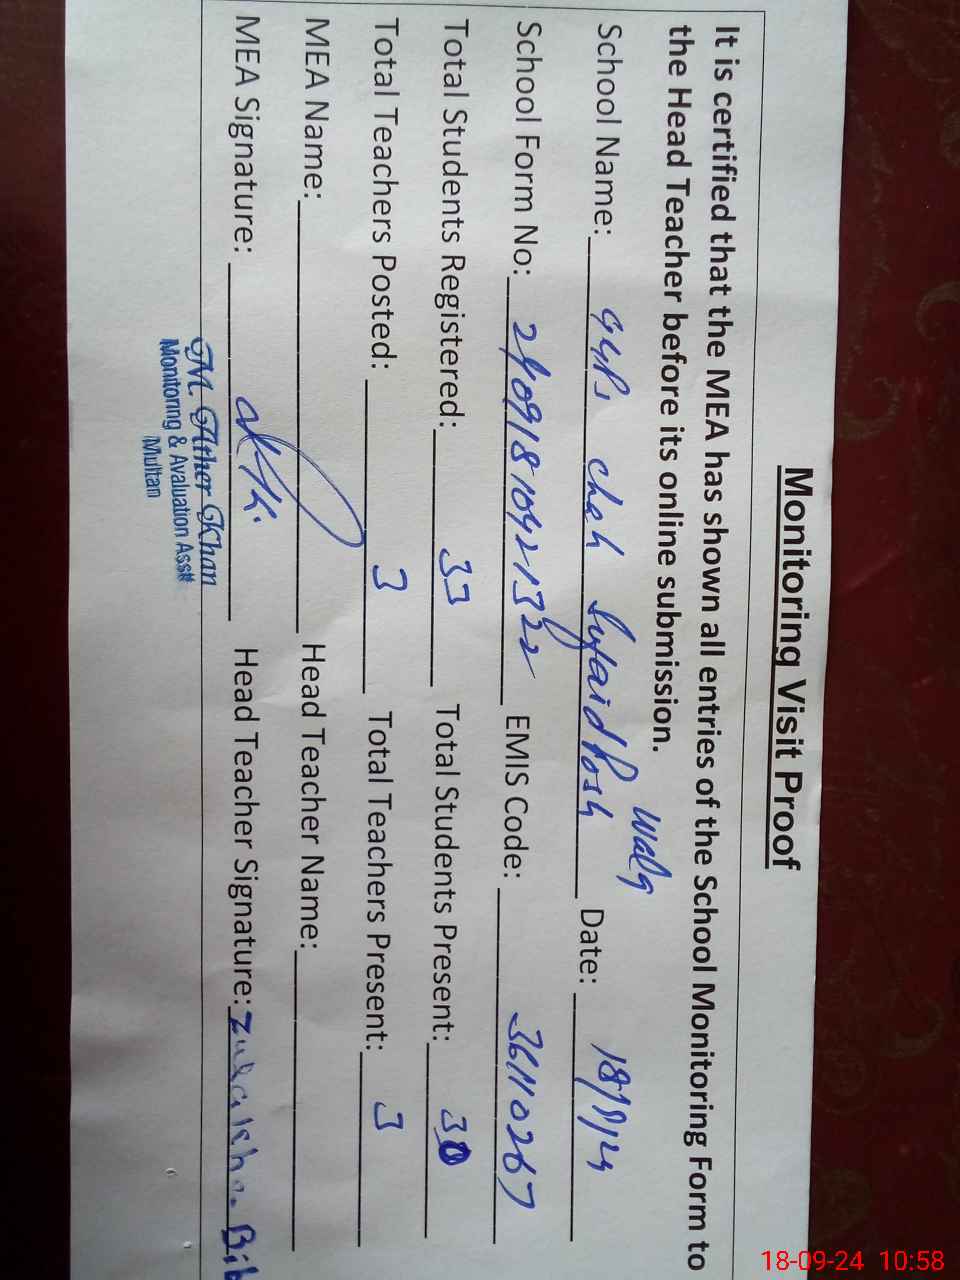 Monitoring Visit Proof
It is certified that the MEA has shown all entries of the School Monitoring Form to
the Head Teacher before its online submission.
School Name: chah Sufaid Posh wala Date: 18/9/24
School Form No: EMIS Code: 36110267
Total Students Registered: 33 Total Students Present: 30
Total Teachers Posted: 3 Total Teachers Present: 3
MEA Name: Head Teacher Name:
MEA Signature: Head Teacher Signature: Zulaikha Bib
M. Ather Khan
Monitoring & Avaluation Asstt
Multan
18-09-24 10:58